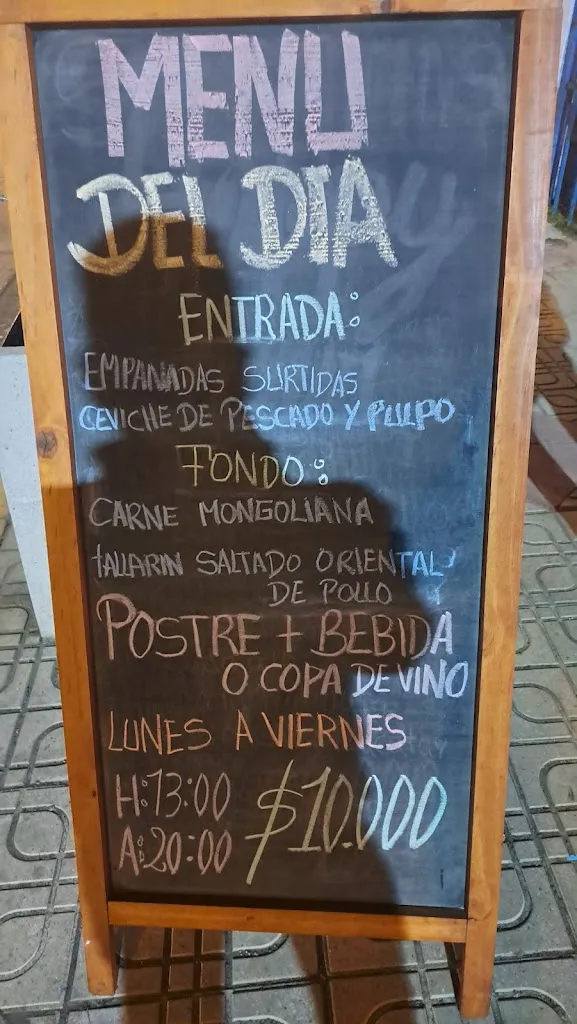 MENU
DEL DIA
ENTRADA:
EMPANADAS SURTIDAS
CEVICHE DE PESCADO Y PULPO
FONDO:
CARNE MONGOLIANA
tALLARIN SALTADO ORIENTAL
DE POLLO
POSTRE + BEBIDA
O COPA DE VINO
LUNES A VIERNES
H:13:00
A:20:00
$10.000